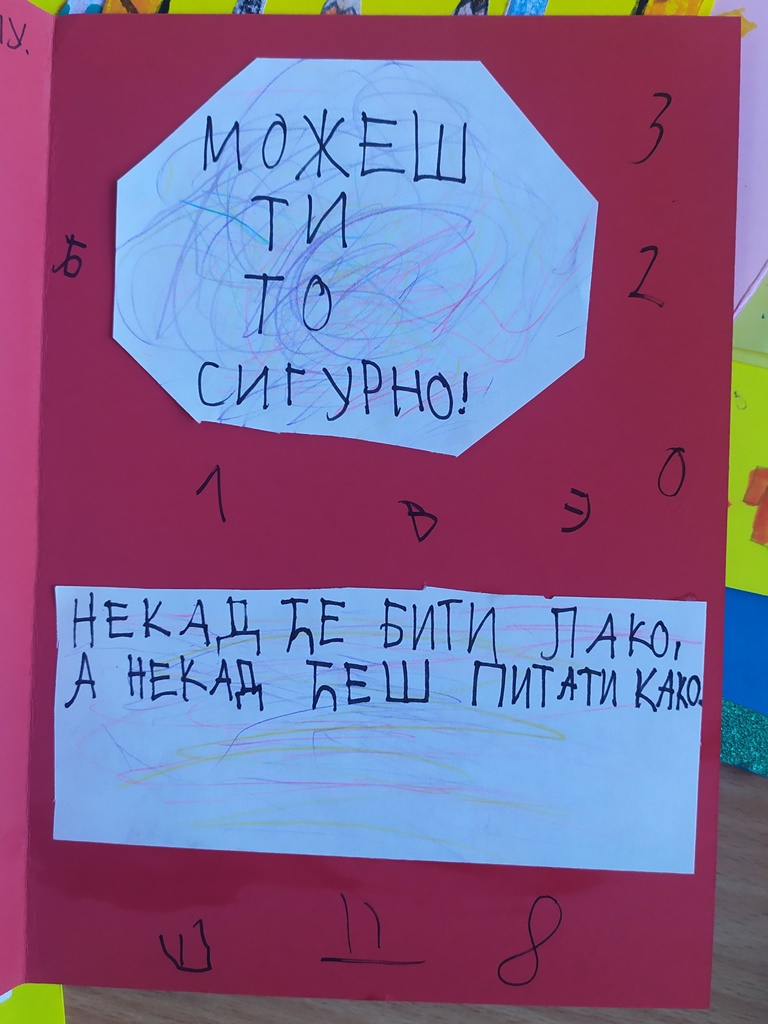 У.
МОЖЕШ
ТИ
ТО
СИГУРНО!
3
2
0
Б
1
В
Э
НЕКАД ЋЕ БИТИ ЛАКО,
А НЕКАД ЋЕШ ПИТАТИ КАКО.
Ш
П
8